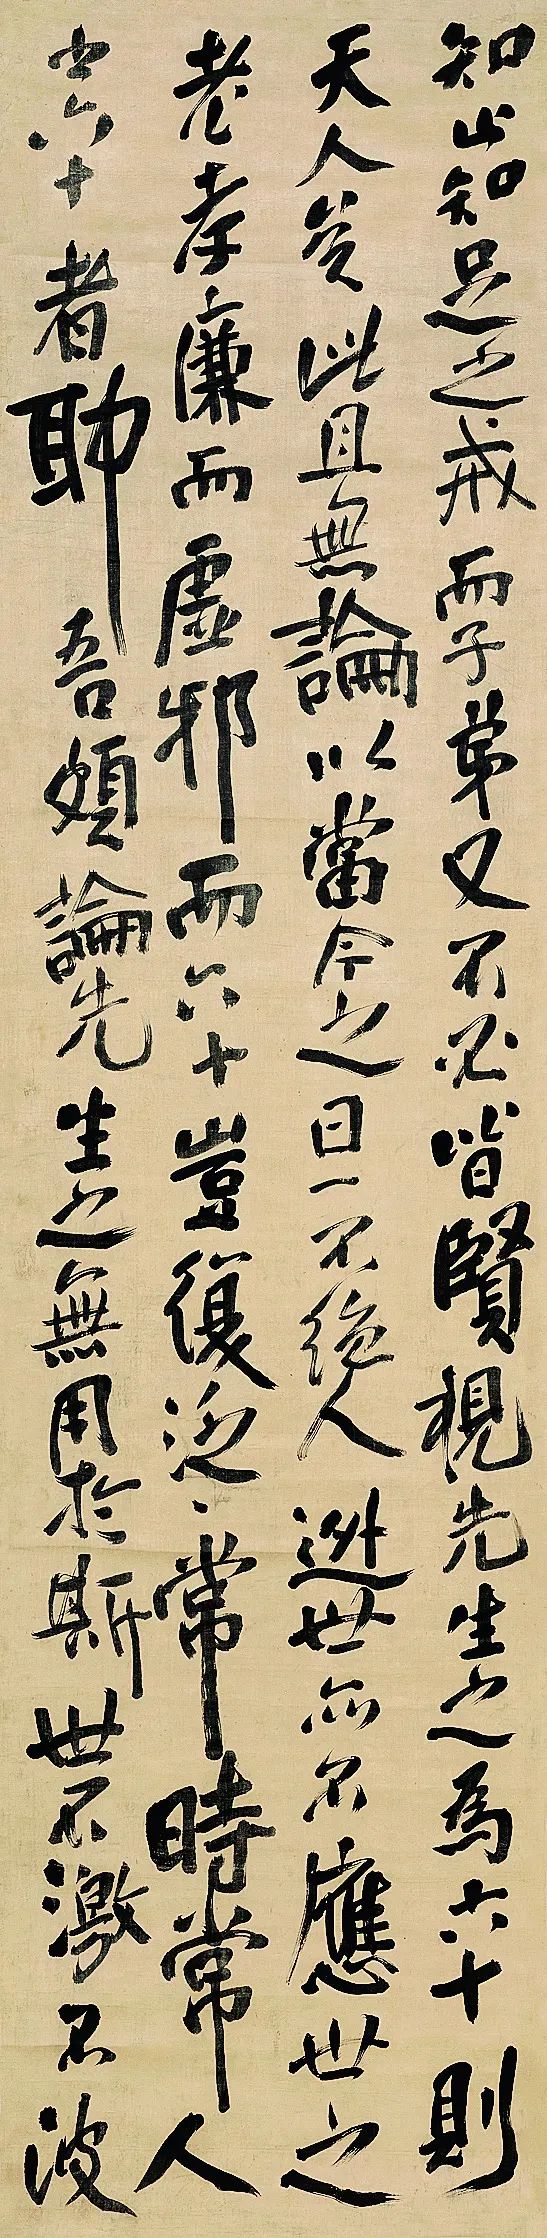 知止知足之戒而子弟又不必皆賢視先生之為六十則
天人矣此且無論以當今之日一不絕人逃世亦不應世之
老孝廉而虛邪而六十豈復泛泛常時常人
之六十者耶吾頗論先生之無用於斯世不激不波